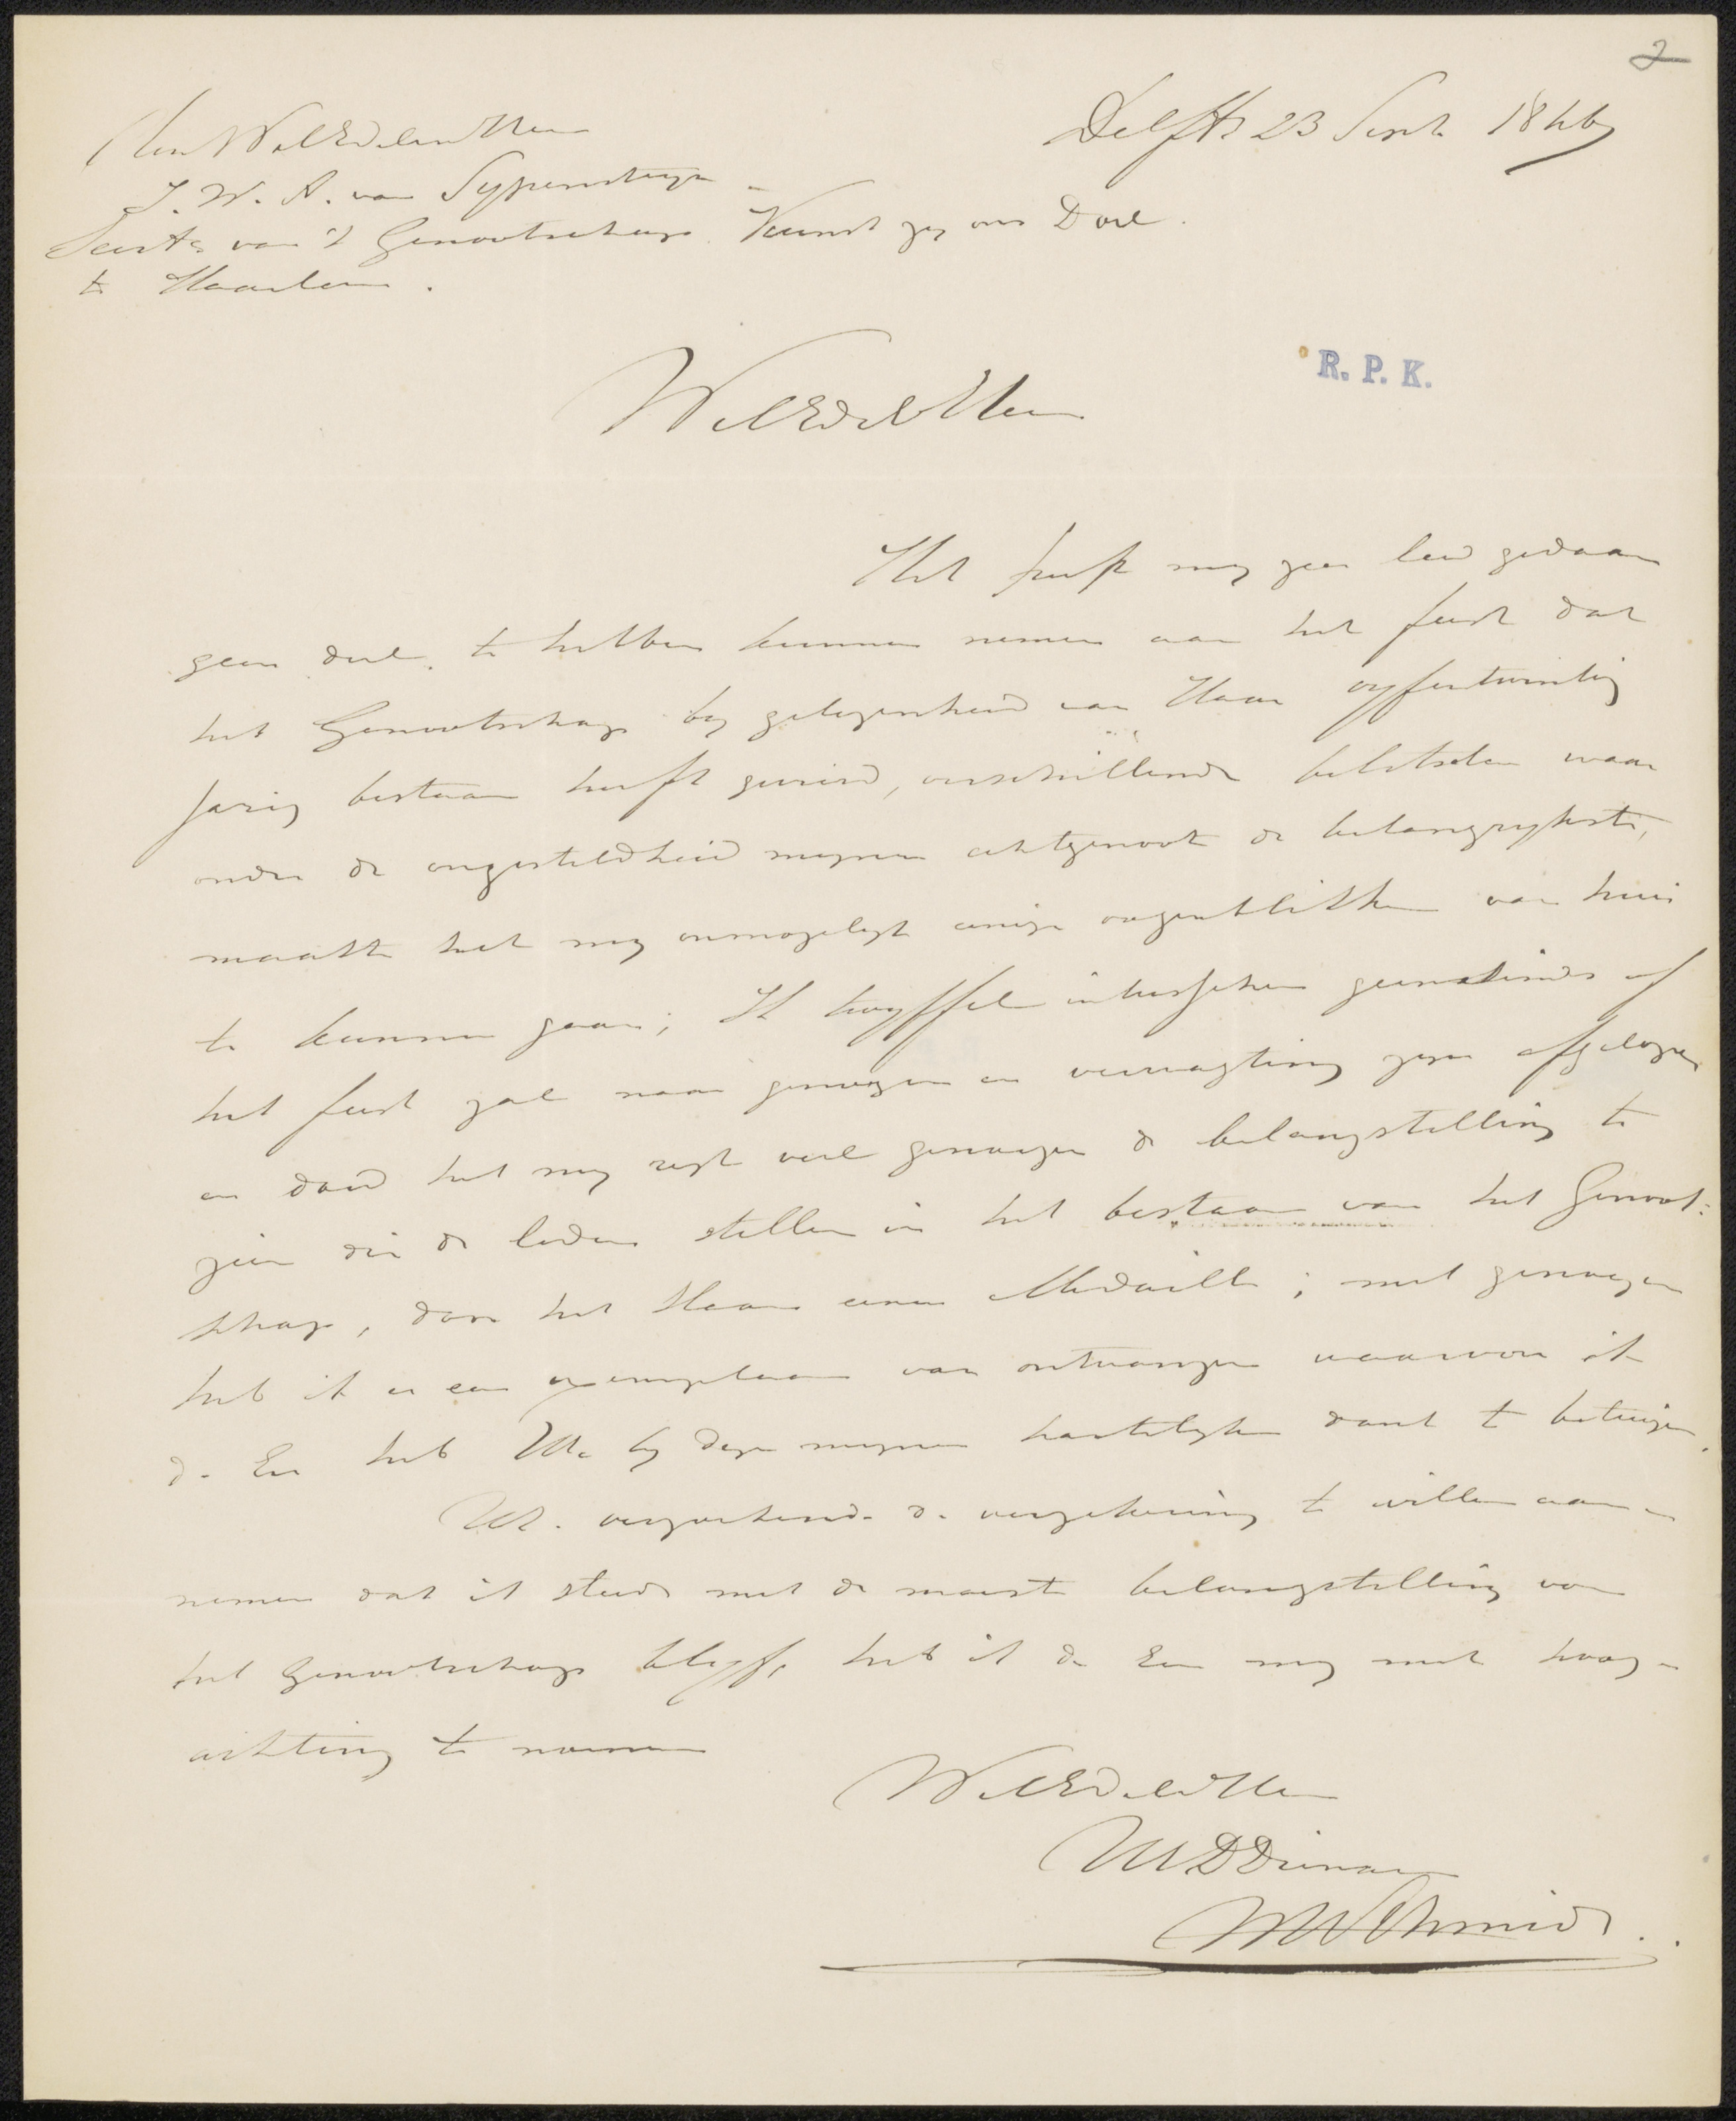 2
Delft 23 Sept. 1846
Aan WelEdelen Heer
J. W. A. van Sypensteyn
Secrts van 't Genootschap Kunst zy ons Doel.
te Haarlem.
R. P. K.
WelEdele Heer
Het heeft my zeer leed gedaan
geen deel te hebben kunnen nemen aan het feest dat
het Genootschap by gelegenheid van Haar vyfentwintig
jarig bestaan heeft gevierd, verschillende beletselen waar
onder de ongesteldheid myner echtgenoote de belangrykste,
maakte het my onmogelyk eenige oogenblikken van huis
te kunnen gaan; Ik twyffel intusschen geenszins of
het feest zal naar genoegen en verwagting zyn afgelopen
en doed het my regt veel genoegen de belangstelling te
zien die de leden stellen in het bestaan van het Genoot:
schap, door het slaan eener Medaille; met genoegen
heb ik er een exemplaar van ontvangen waarvoor ik
d. Eer heb UE. by deze mynen hartelyken dank te betuigen.
UE. verzoekende de verzekering te willen aan-
nemen dat ik steeds met de meeste belangstelling voor
het Genootschap blyf, heb ik de Eer my met hoog-
achting te noemen
WelEdele Heer
UEDDienaar
WHSchmidt.